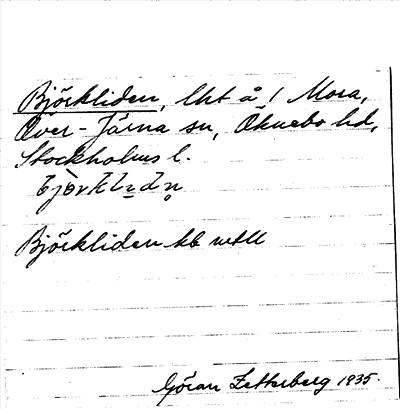 Björkliden, lht å 1 Mora,
Över-Järna sn, Öknebo hd,
Stockholms l.
Björkliden kb
Göran Zetterberg 1935.